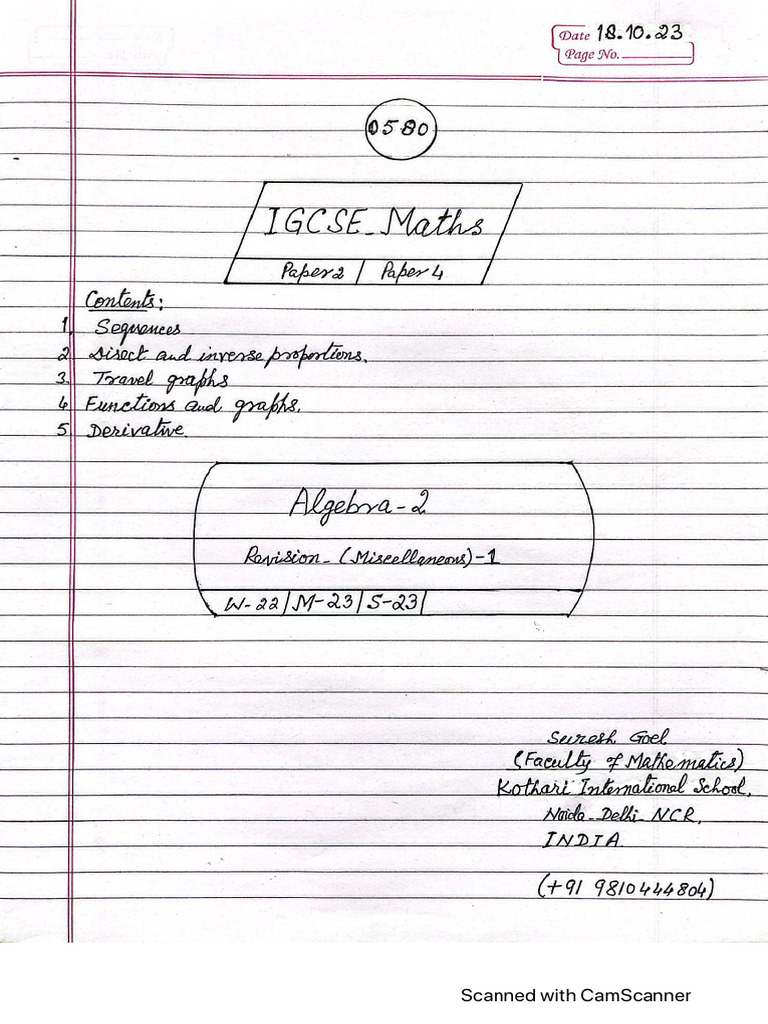 Date 18.10.23
Page No.
0580
IGCSE-Maths
Paper 2 / Paper 4
Contents:
1. Sequences
2 Direct and inverse proportions.
3. Travel graphs
4 Functions and graphs.
5. Derivative.
Algebra-2
Revision-(Miscellaneous)-1
W-22/M-23/S-23/
Suresh Goel
(Faculty of Mathematics)
Kothari International School,
Noida-Delhi-NCR,
INDIA
(+91 9810444804)
Scanned with CamScanner